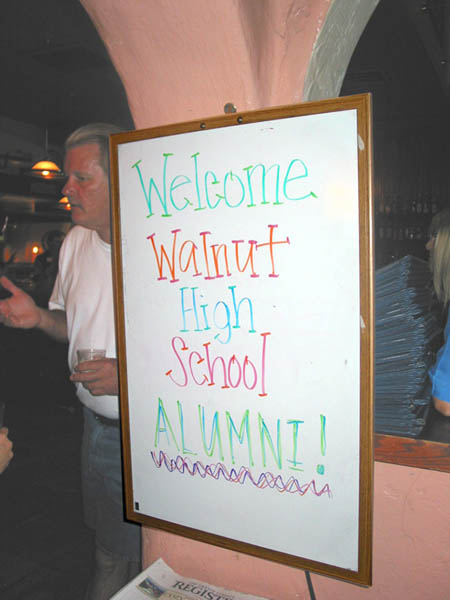 Welcome
Walnut
High
School
ALUMNI!
REGISTER